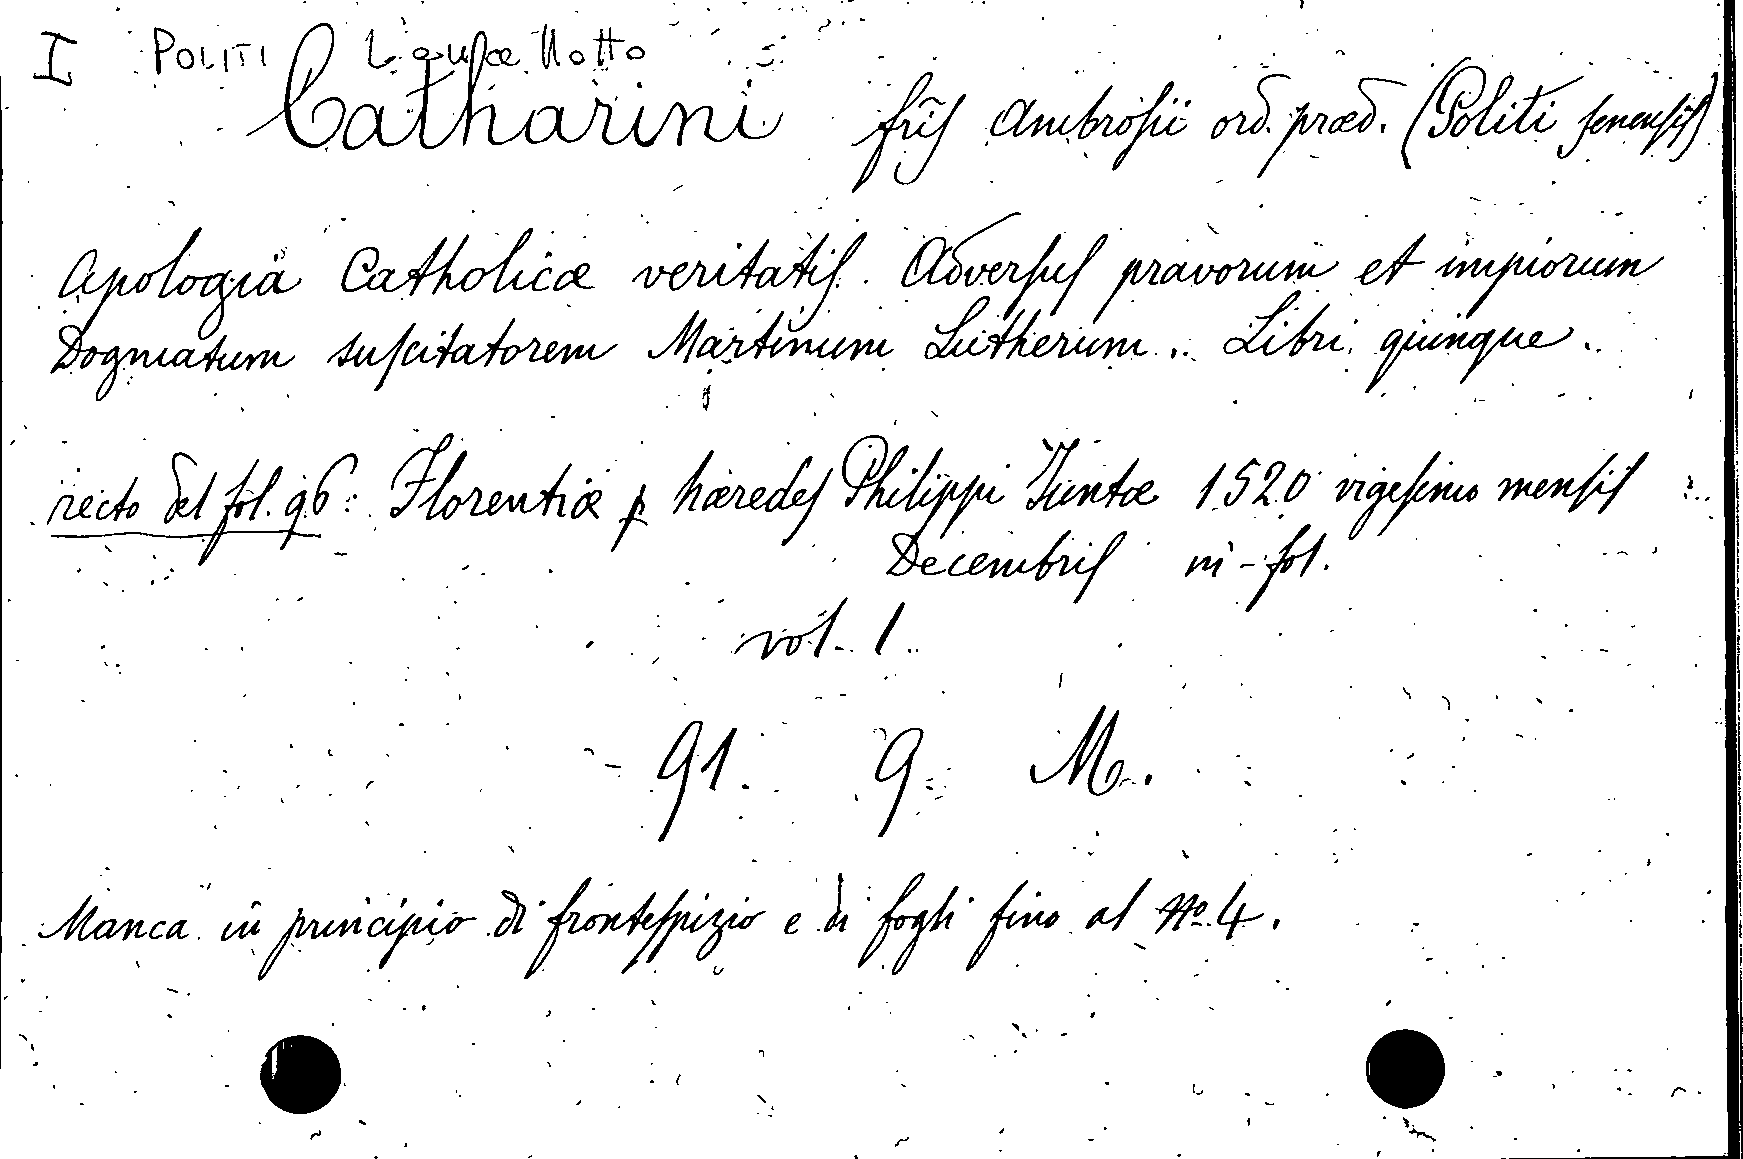 I POLITI Lancellotto
Catharini fr̃is Ambrosii ord. præd. (Politi senensis)
Apologia Catholicæ veritatis. Adversus pravorum et impiorum
Dogmatum suscitatorem Martinum Lutherum.. Libri quinque.
recto del fol. 96: Florentiæ p hæredes Philippi Juntæ 1520 vigesimo mensis
Decembris in-fol.
vol. 1.
91. 9. M.
Manca in principio di frontespizio e di fogli fino al Nº 4.